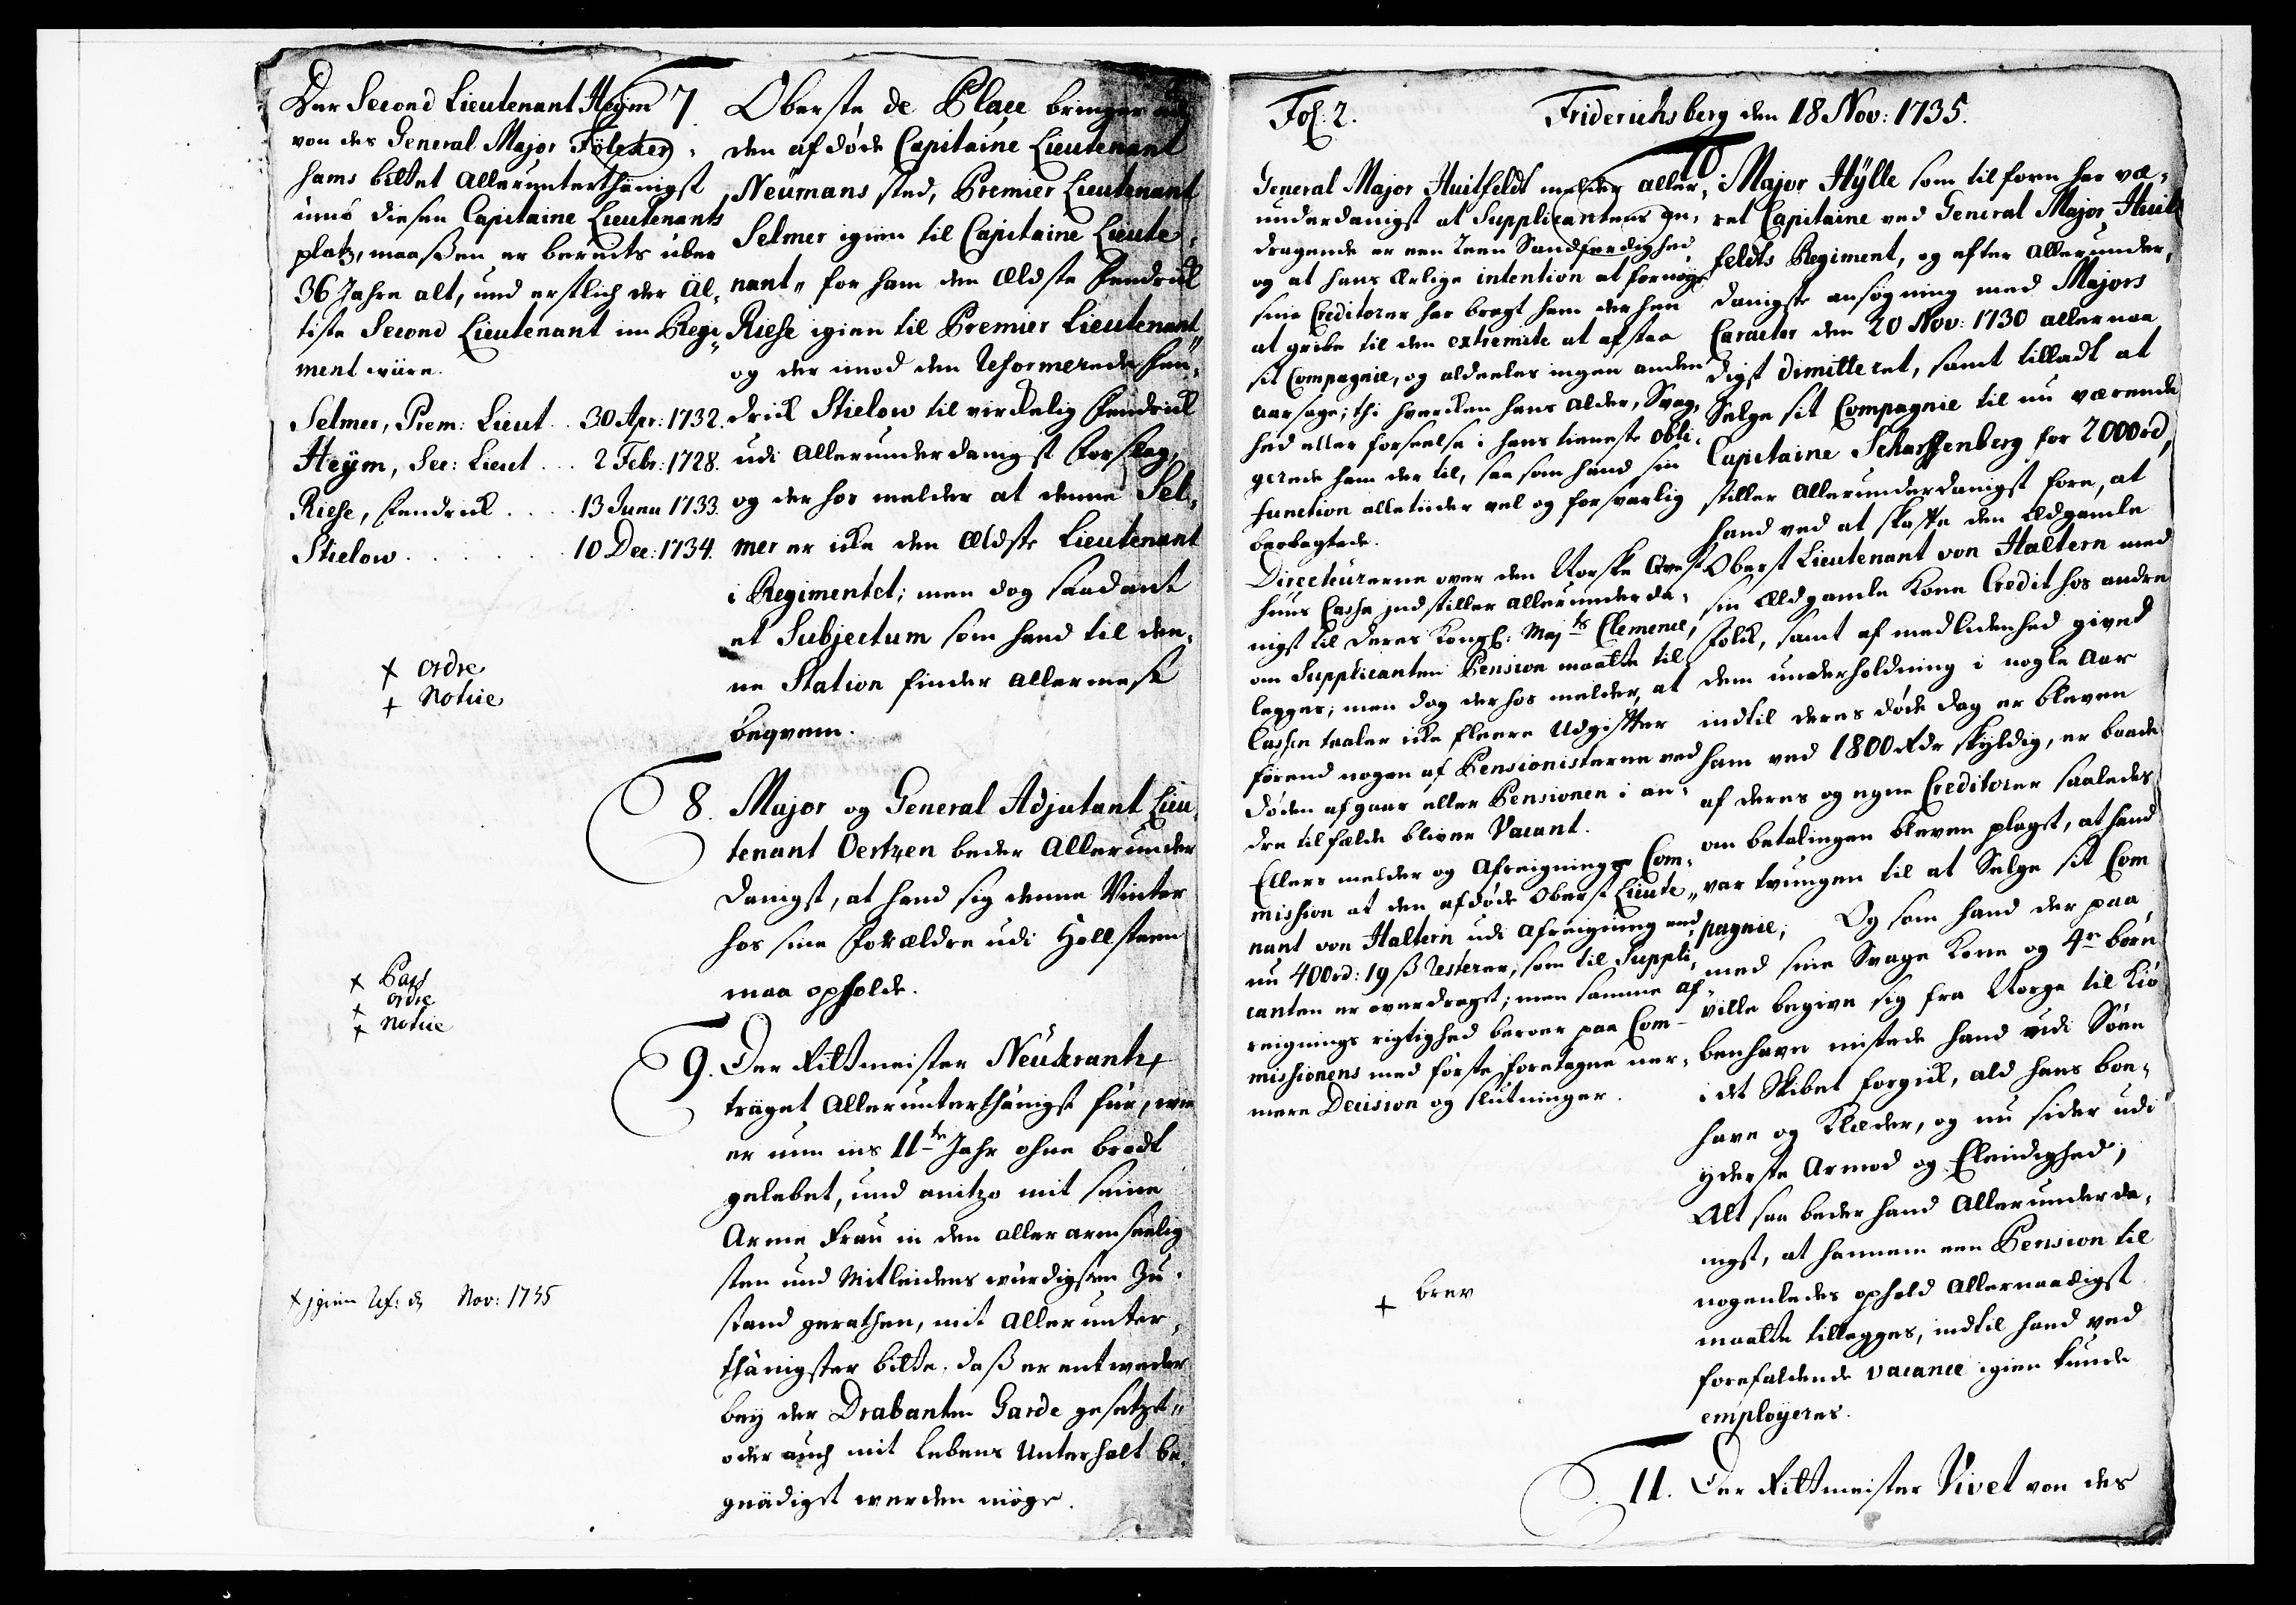 Der Second Lieutenant Heÿm
von des General Major Fölckers
hams bittet Allerunterthänigst
umb diesen Capitaine Lieutenants
platz, maaßen er bereits über
36 Jahre alt, und erstlich der Äl,
tiste Second Lieutenant im Regi„
ment wäre.
Selmer, Prem: Lieut . . 30 Apr: 1732.
Heÿm, Sec: Lieut . . . 2 Febr: 1728.
Riese, Fendrick . . . . 13 Juny 1733.
Stielow . . . . . . . 10 Dec: 1734.
+ Ordre
+ Notice
+ Pass
+ Ordre
+ Notice
+ igien Ref: d Nov: 1735
7. Oberste de Place bringer udj
den afdøde Capitaine Lieutenant
Neümans sted, Premier Lieutenant
Selmer igien til Capitaine Lieute,
nant„ for ham den Ældste Fendrick
Riese igien til Premier Lieutenant„
og der imod den Reformerede Fen,
drick Stielow til virckelig Fendrick
udi Allerunderdanigst Forslag,
og der hos melder at denne Sel,
mer er icke den Ældste Lieutenant
i Regimentet; men dog saadant
et Subjectum som hand til den,
ne Station finder Allermest
beqvem.
8. Major og General Adjutant Lieu,
tenant Oertzen beder Allerunder
danigst, at hand sig denne Vinter
hos sine Forældre udi Hollsteen
maa opholde.
9. Der Rittmeister Neükrantz
träget Allerunterthänigst für, wie
er nun ins 11te Jahr ohne brodt
gelebet, und anitzo mit seine
Arme Frau in den aller armseelig
sten und Mitleidens würdigsten Zu,
stand gerathen, mit Allerunter,
thänigster bitte, daß er entweder
bey der Drabanten Garde gesetzet„
oder auch mit lebens Unterhalt be,
gnädiget werden möge.
Fol: 2. Friderichsberg den 18 Nov: 1735.
General Major Huitfeldt melder aller,
underdanigst at Supplicantens an,
dragende er een reen Sandfærdighed
og at hans Ærlige intention at fornøye
sine Creditorer har bragt ham der hen
at gribe til den extremite at afstaa
sit Compagnie, og aldeeles ingen anden
aarsage; thi hvercken hans Alder, Svag,
hed eller forseelse i hans tieneste obli,
gerede ham der til, saa som hand sin
function alletiider vel og forsvarlig
beobagtede.
Directeürerne over den Norske Qvest
huus Casse indstiller Allerunderda,
nigst til Deres Kongl: Majts Clemence,
om Supplicanten Pension maatte til
legges; men dog derhos melder, at
Cassen taaler icke fleere Udgifter
førend nogen af Pensionisterne ved
døden afgaar eller Pensionen i an,
dre tilfælde bliver Vacant.
Ellers melder og Afreignings Com,
mission at den afdøde Oberst Lieute„
nant von Haltern udi Afreigning end,
nu 400rd: 19ß Resterer, som til Suppli,
canten er overdraget; men samme Af,
reignings rigtighed beroer paa Com-
missionens med første foretagne nær,
mere Decision og slutninger.
+ brev
Major Hÿlle som tilforn har væ,
ret Capitaine ved General Major Huit
feldts Regiment, og efter Allerunder,
danigste ansøgning med Majors
Caracter den 20 Nov: 1730 allernaa
digst dimitteret, samt tilladt at
Selge sit Compagnie til nu værende
Capitaine Scharffenberg for 2000rd,
stiller Allerunderdanigst fore, at
hand ved at skaffe den Ældgamle
Oberst Lieutenant von Haltern med
sin Ældgamle Kone Credit hos andre
Folck, samt af medlidenhed gived
dem underholdning i nogle Aar
indtil deres døde dag er bleven
ham ved 1800 Rdr skyldig, er baade
af deres og egne Creditorer saaledes
om betalingen bleven plaget, at hand
var tvungen til at Selge sit Com
pagnie; Og som hand der paa
med sin Svage Kone og 4re børn
ville begive sig fra Norge til Kiø
benhavn mistede hand udi Søen
i det Skibet forgick, ald hans boe,
have og Klæder, og nu sider udi
yderste Armod og Elendighed;
Alt saa beder hand Allerunderda,
nigst, at hannem een Pension til
nogenledes ophold Allernaadigst
maatte tillegges, indtil hand ved
forefaldende vacance igien kunde
employeres.
11. Der Rittmeister Vivet von des